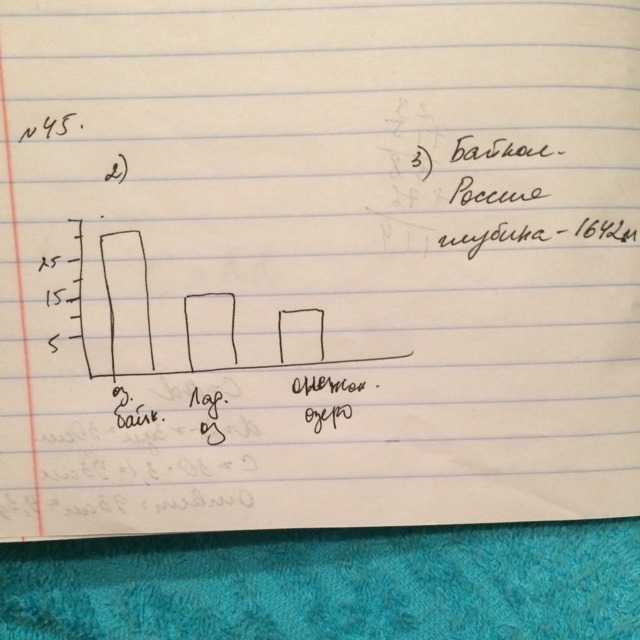 №45.
2)
25
15
5
оз.
байк.
Лад.
оз
онежск.
озеро
3) Байкал.
Россия
глубина - 1642м